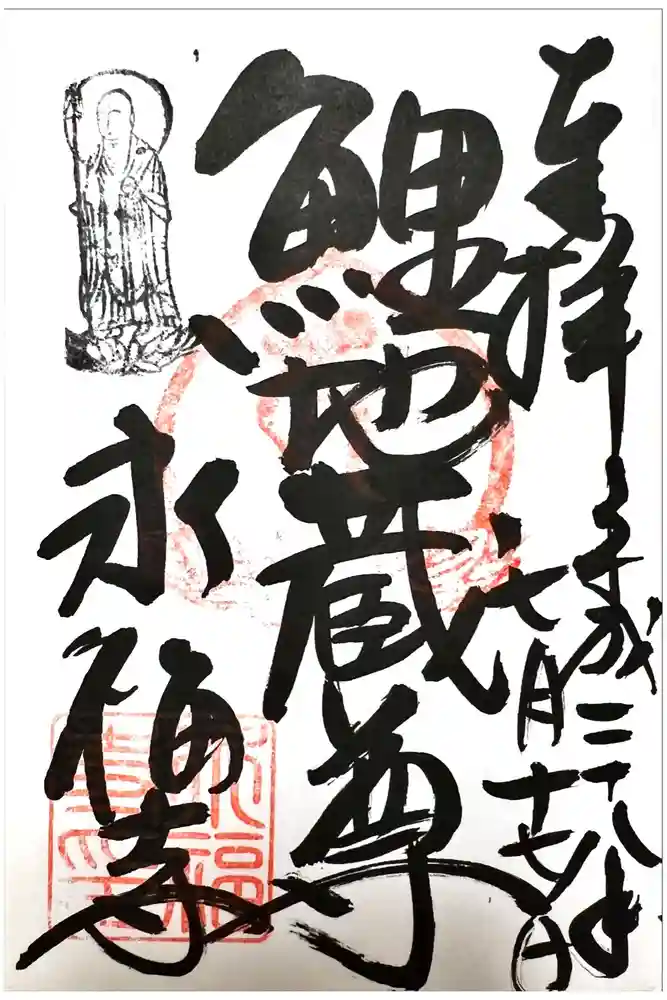 奉拝
平成二十八年
七月十七日
鯉地蔵尊
永福寺